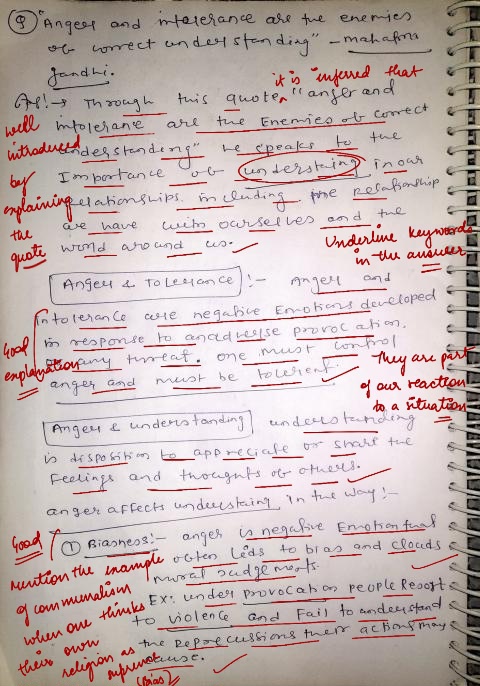 Q "Anger and intolerance are the enemies
of correct understanding" - mahatma
Gandhi.
it is inferred that
Ans:→ Through this quote, "anger and
intolerance are the Enemies of Correct
understanding" he speaks to the
Importance of understaing in our
relationships including the relationship
we have with ourselves and the
world around us.
well
introduced
by
explaining
the
quote
Underline keywords
in the answer
Anger & Tolerance :- Anger and
intolerance are negative Emotions developed
in response to an adverse provocation.
or any threat. one must control
anger and must be tolerent.
Good
explanation
They are part
of our reaction
to a situation
Anger & understanding understanding
is disposition to appreciate or share the
Feelings and thoughts of others.
anger affects understaing in the way:-
① Biasness:- anger is negative Emotion that
often leds to bias and clouds
moral judgements.
Ex: under provocation people Resort
to violence and Fail to understand
the repercussions their actions may
cause.
Good
mention the example
of communalism
when one thinks
their own
religion as
supreme
(Bias)